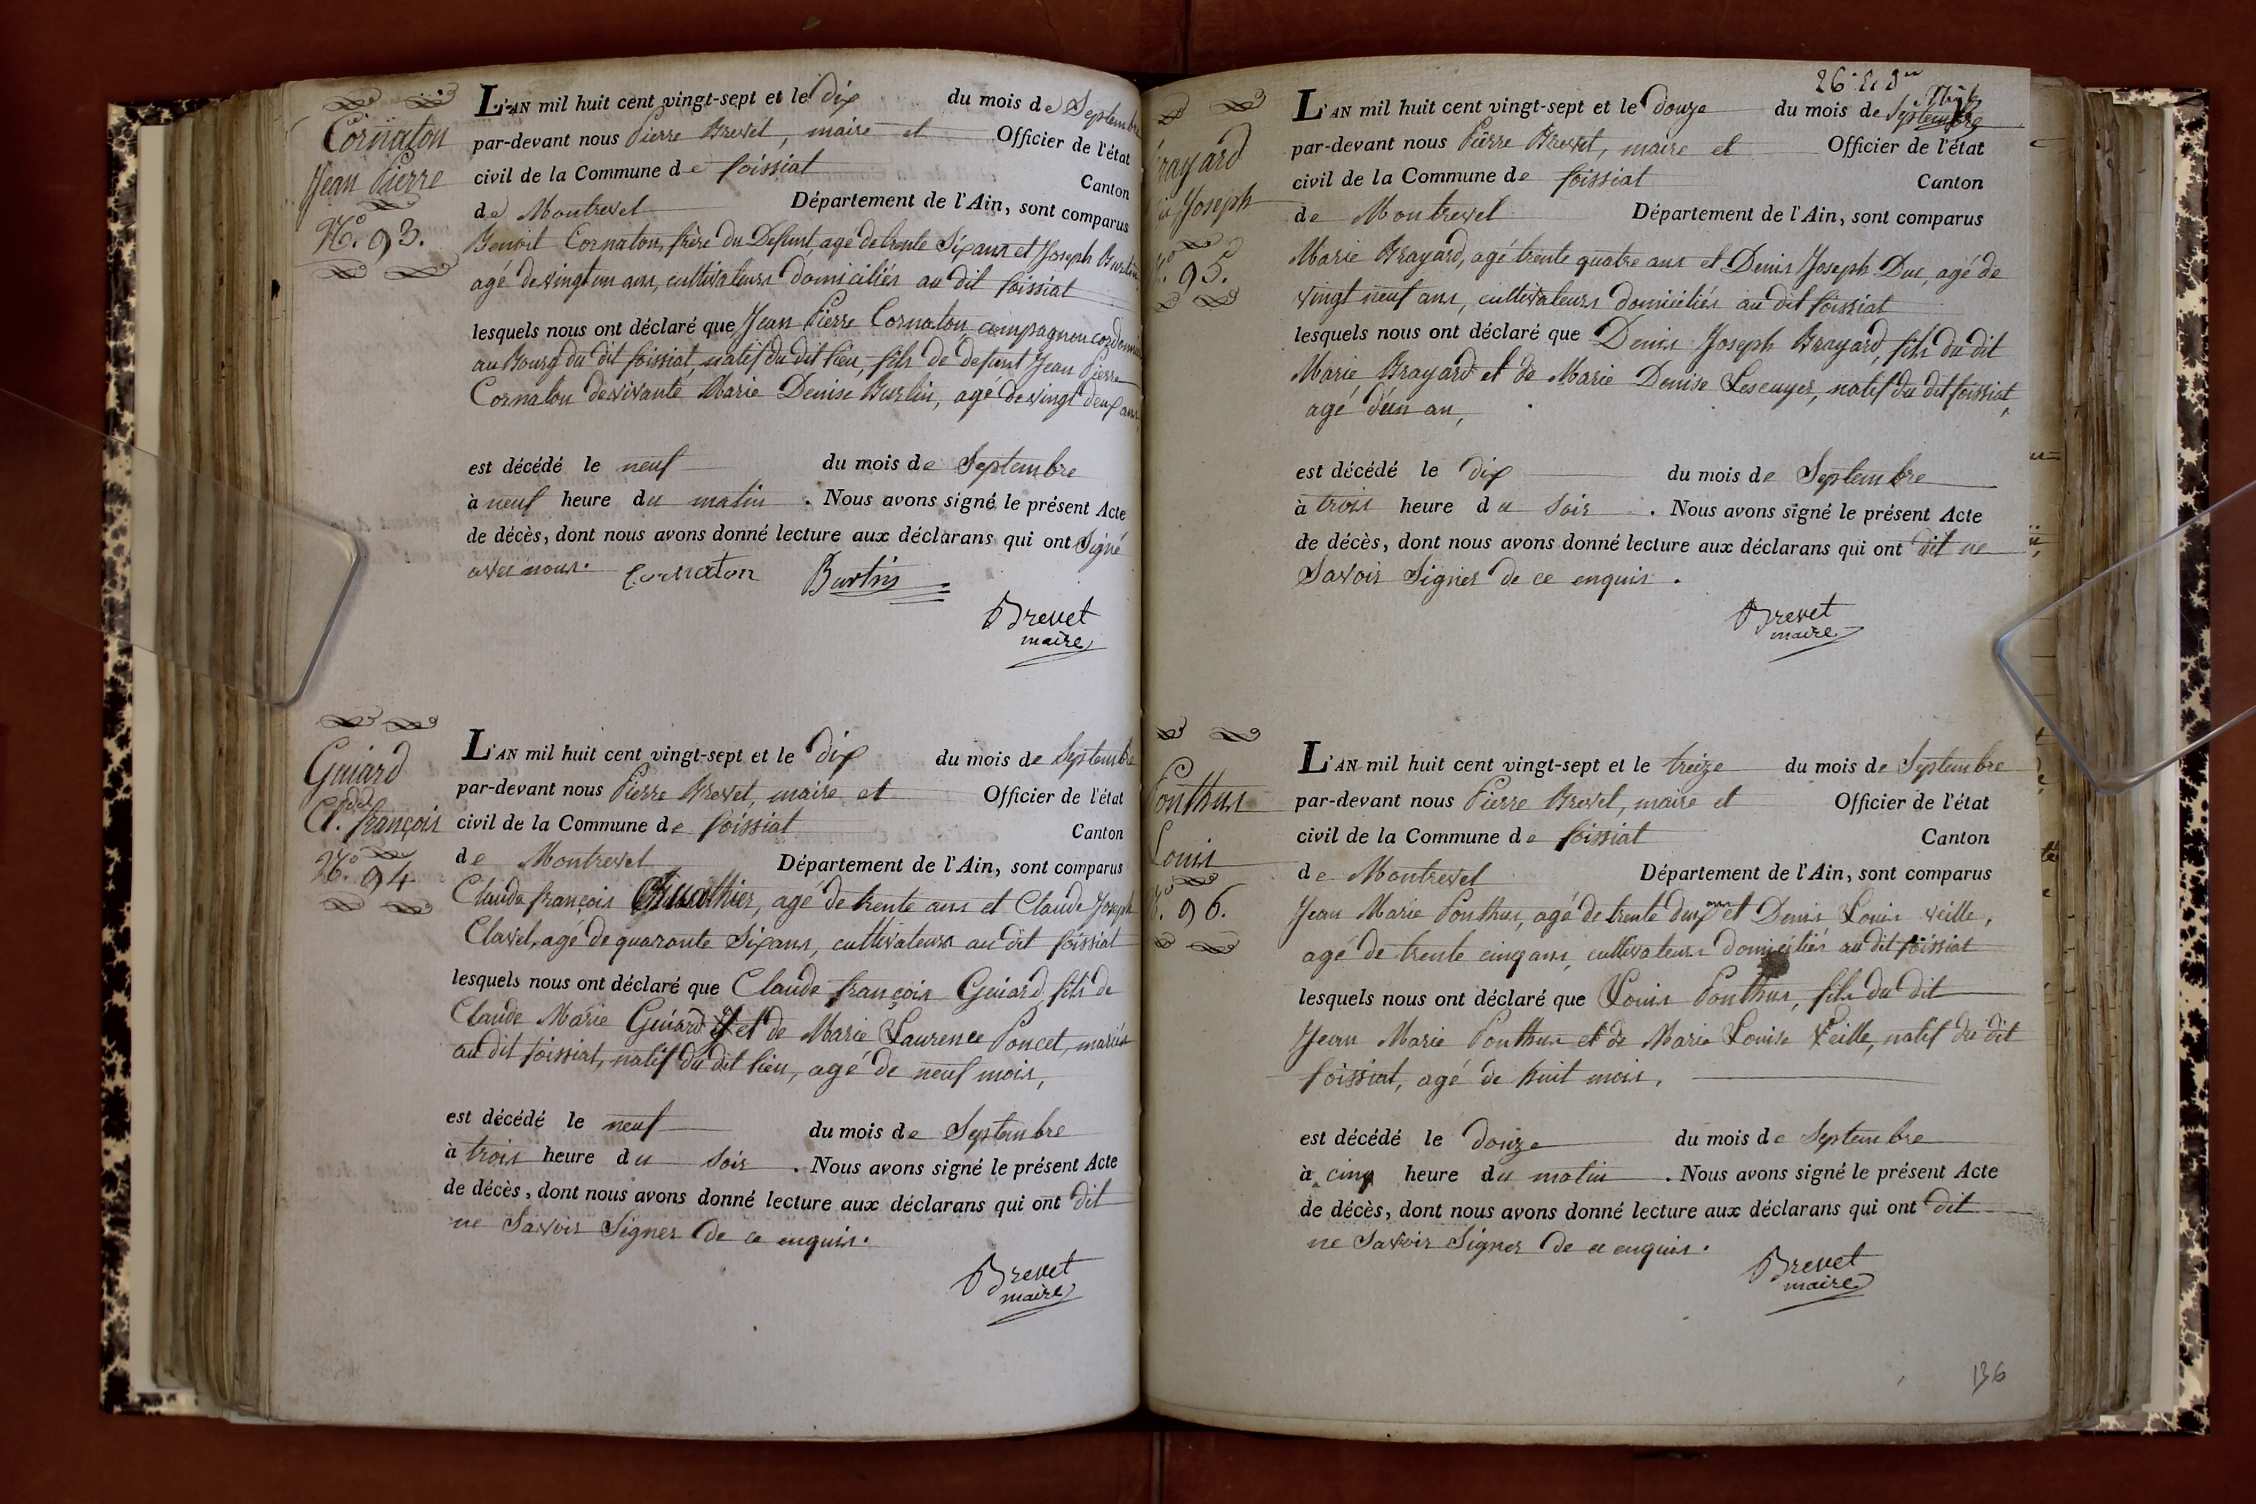 Cornaton
Jean Pierre
N.o 93.
L'AN mil huit cent vingt-sept et le dix du mois de Septembre
par-devant nous Pierre Brevet, maire et Officier de l'état
civil de la Commune de foissiat Canton
de Montrevel Département de l'Ain, sont comparus
Benoit Cornaton, frère du Defunt, agé de trente Six ans et Joseph Burtin
agé de vingt un ans, cultivateurs domiciliés au dit foissiat
lesquels nous ont déclaré que Jean Pierre Cornaton, compagnon cordonnier
au Bourg du dit foissiat, natif du dit lieu, fils de defunt Jean Pierre
Cornaton de vivante Marie Denise Burtin, agé de vingt deux ans,
est décédé le neuf du mois de Septembre
à neuf heure du matin . Nous avons signé le présent Acte
de décès, dont nous avons donné lecture aux déclarans qui ont Signé
avec nous. Cornaton Burtin
Brevet
maire
Guiard
Cl.de françois
N.o 94
L'AN mil huit cent vingt-sept et le dix du mois de Septembre
par-devant nous Pierre Brevet, maire et Officier de l'état
civil de la Commune de foissiat Canton
de Montrevel Département de l'Ain, sont comparus
Claude françois agé de trente ans et Claude Joseph
Clavel, agé de quarante Six ans, cultivateurs au dit foissiat
lesquels nous ont déclaré que Claude françois Guiard, fils de
Claude Marie Guiard et de Marie Laurence Poncet, mariés
au dit foissiat, natif du dit lieu, agé de neuf mois,
est décédé le neuf du mois de Septembre
à trois heure du soir . Nous avons signé le présent Acte
de décès, dont nous avons donné lecture aux déclarans qui ont dit
ne Savoir Signer de ce enquis.
Brevet
maire
rayard
Joseph
95.
L'AN mil huit cent vingt-sept et le douze du mois de Septembre
par-devant nous Pierre Brevet, maire et Officier de l'état
civil de la Commune de foissiat Canton
de Montrevel Département de l'Ain, sont comparus
Marie Brayard, agé trente quatre ans et Denis Joseph Duc, agé de
vingt neuf ans, cultivateurs domiciliés au dit foissiat
lesquels nous ont déclaré que Denis Joseph Brayard, fils du dit
Marie Brayard et de Marie Denise Lescuyer, natif du dit foissiat,
agé d'un an,
est décédé le dix du mois de Septembre
à trois heure du soir . Nous avons signé le présent Acte
de décès, dont nous avons donné lecture aux déclarans qui ont dit ne
Savoir Signer de ce enquis.
Brevet
maire
Ponthus
Louis
96.
L'AN mil huit cent vingt-sept et le treize du mois de Septembre
par-devant nous Pierre Brevet, maire et Officier de l'état
civil de la Commune de foissiat Canton
de Montrevel Département de l'Ain, sont comparus
Jean Marie Ponthus, agé de trente deux ans et Denis Louis veille,
agé de trente cinq ans, cultivateurs domiciliés au dit foissiat
lesquels nous ont déclaré que Louis Ponthus, fils du dit
Jean Marie Ponthus et de Marie Louise Veille, natif du dit
foissiat, agé de huit mois.
est décédé le douze du mois de Septembre
à cinq heure du matin . Nous avons signé le présent Acte
de décès, dont nous avons donné lecture aux déclarans qui ont dit
ne Savoir Signer de ce enquis.
Brevet
maire
136